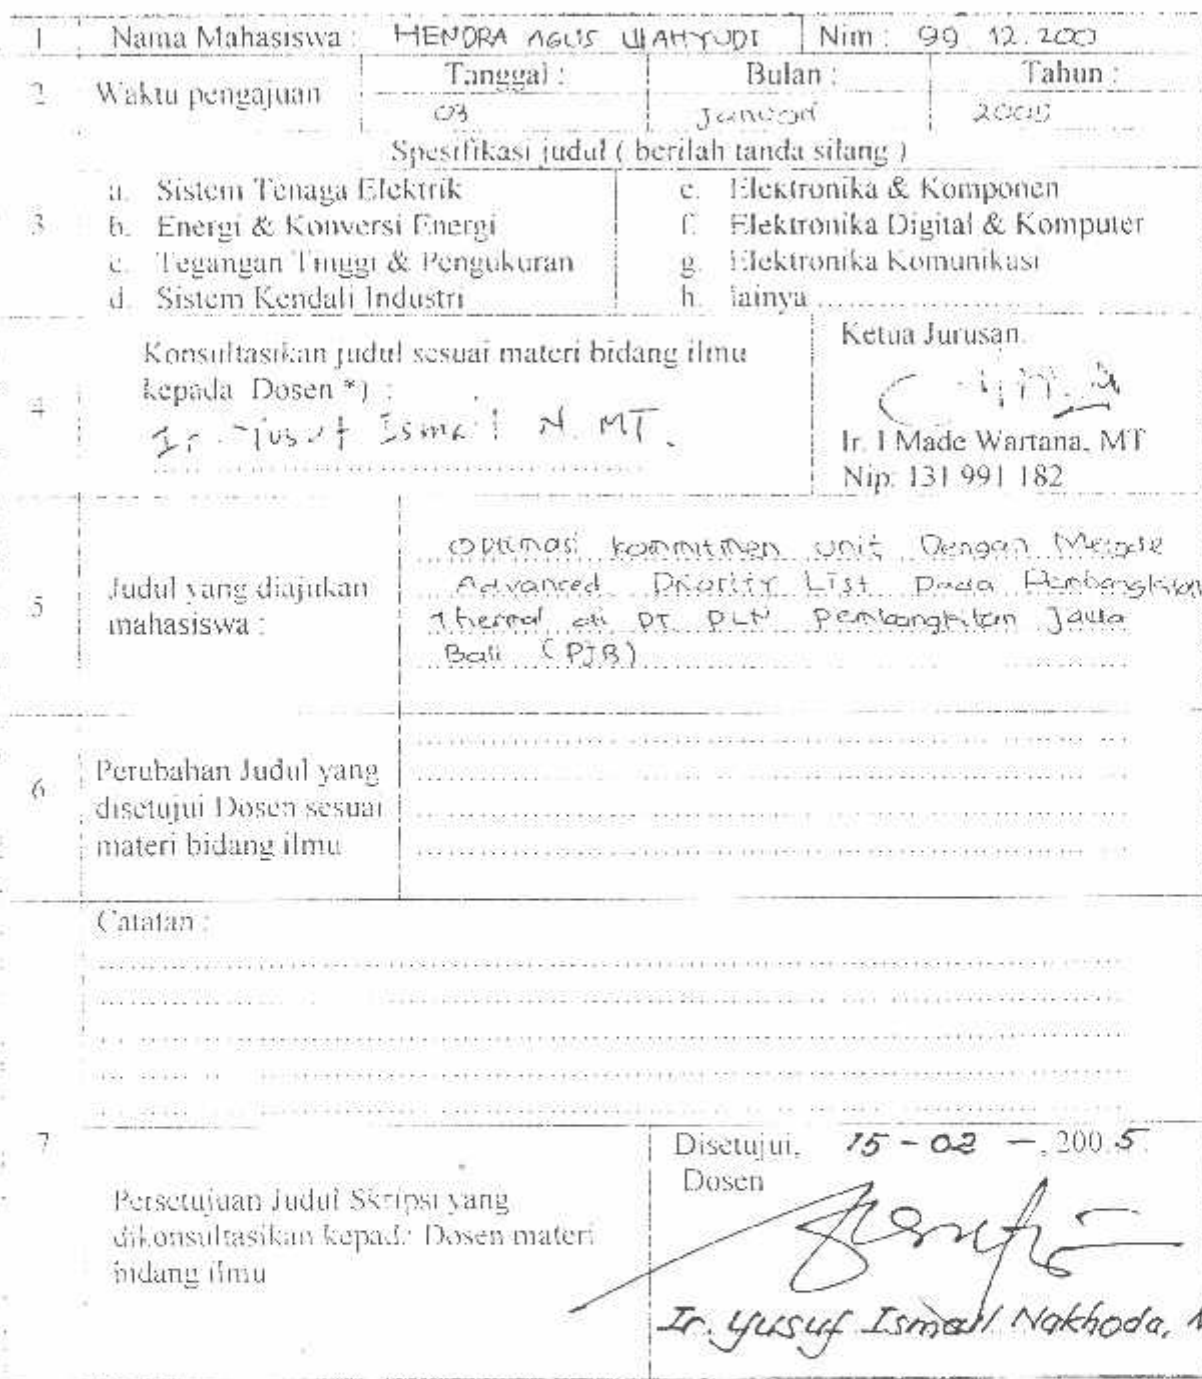 1 Nama Mahasiswa : HENDRA AGUS WAHYUDI Nim : 99 12.200
2 Waktu pengajuan Tanggal : Bulan : Tahun :
03 Januari 2005
Spesifikasi judul ( berilah tanda silang )
3
a. Sistem Tenaga Elektrik
b. Energi & Konversi Energi
c. Tegangan Tinggi & Pengukuran
d. Sistem Kendali Industri
e. Elektronika & Komponen
f. Elektronika Digital & Komputer
g. Elektronika Komunikasi
h. lainya ....................
4
Konsultasikan judul sesuai materi bidang ilmu
kepada Dosen *) :
Ir. Yusuf Ismail N. MT.
Ketua Jurusan.
Ir. I Made Wartana, MT
Nip. 131 991 182
5
Judul yang diajukan
mahasiswa :
Optimasi kommitmen unit Dengan Metode
Advanced Priority List Pada Pembangkitan
thermal di PT PLN Pembangkitan Jawa
Bali (PJB)
6
Perubahan Judul yang
disetujui Dosen sesuai
materi bidang ilmu
Catatan :
7
Persetujuan Judul Skripsi yang
dikonsultasikan kepada Dosen materi
bidang ilmu
Disetujui, 15 - 02 - , 200.5.
Dosen
Ir. Yusuf Ismail Nakhoda, M